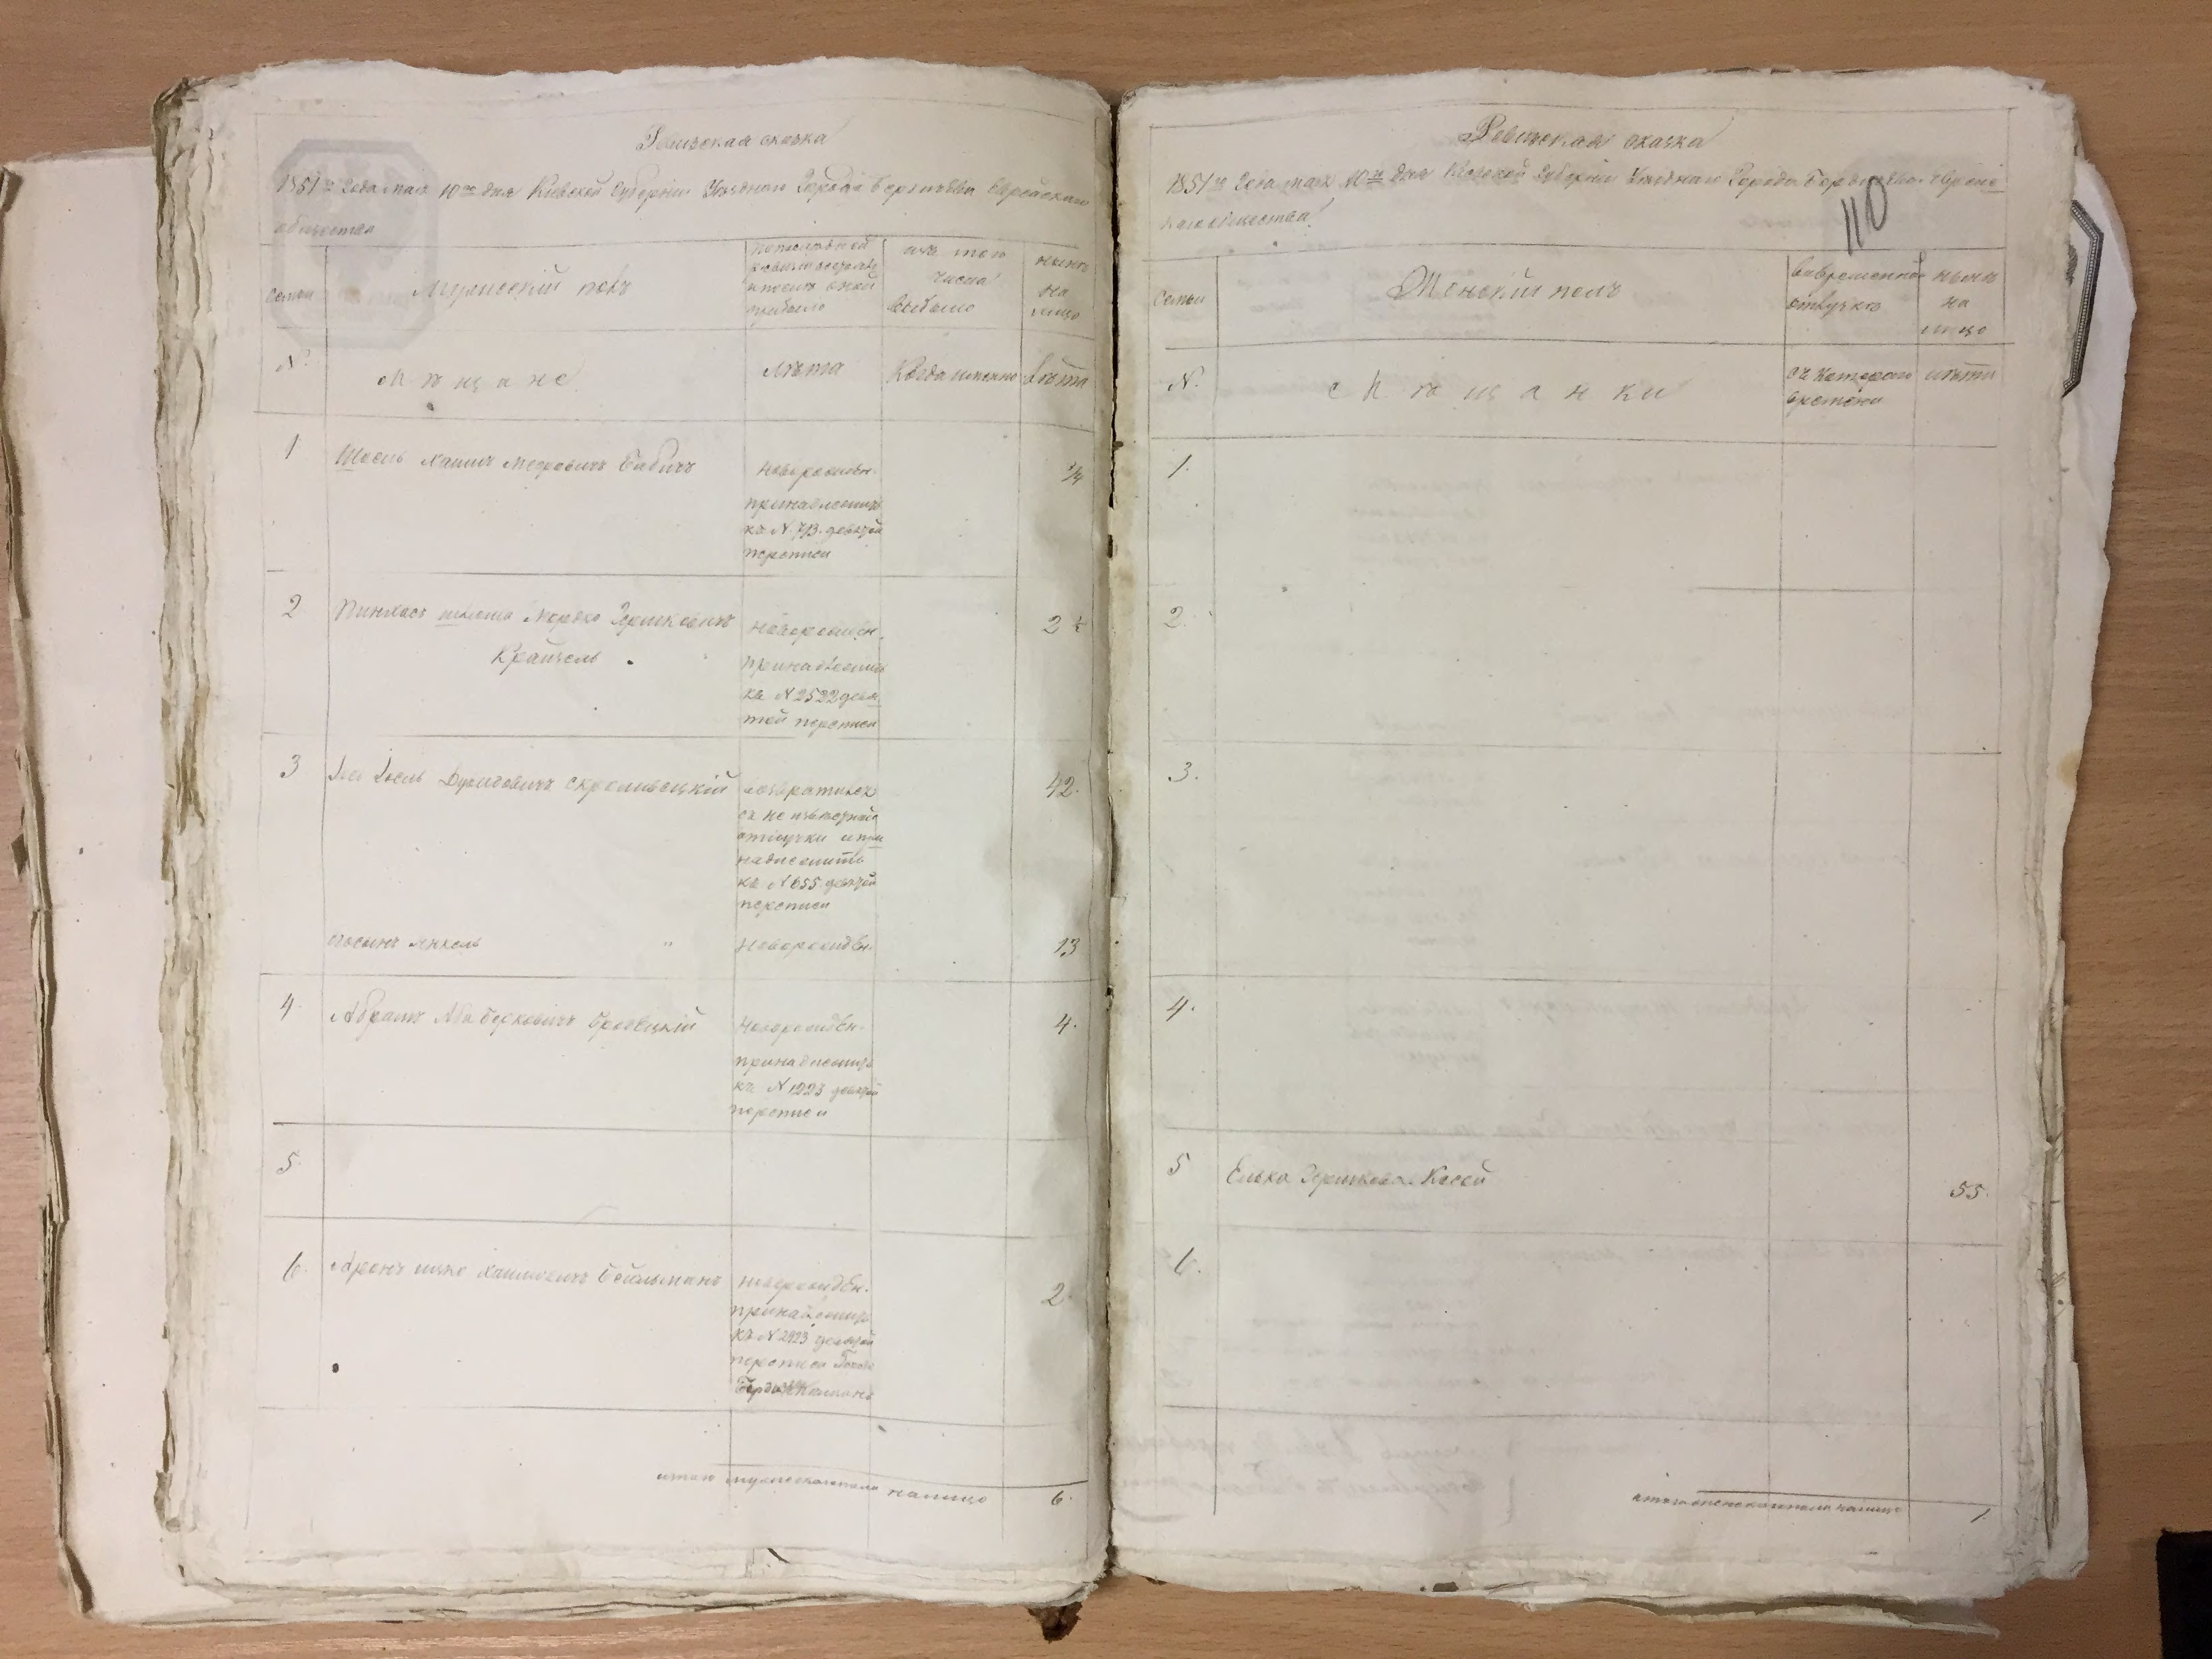 Ревизская сказка
1851го года мая 10го дня Киевской Губернии Уезднаго Города Бердичева Еврейскаго
общества
Семьи
Мужеский полъ
По последней
ревизии состояло
и после оной
прибыло
изъ того
числа
выбыло
ныне
на
лицо
№
Мѣщане
Лѣта
Когда именно
Лѣта
1
Шоель Хаимъ Мееровичъ Бабичъ
новорожден.
принадлежитъ
къ N 713 девятой
переписи
3/4
2
Пинхасъ Мордко Гершковичъ
Крайзель
новорожден.
принадлежитъ
къ N 2522 девя
той переписи
2 ½
3
Іосель Дувидовичъ Скромивецкій
возвратился
съ не известной
отлучки и при
надлежитъ
къ N 655 девятой
переписи
42
его сынъ Янкель
"
новорожден.
13
4.
Абрамъ Аба Берковичъ
новорожден.
принадлежитъ
къ N 1223 девятой
переписи
4.
5
6.
Аронъ Хаимовичъ Бейльманъ
новорожден.
принадлежитъ
къ N 2923 девятой
переписи
2
итого мужескаго пола на лицо
6.
Ревизская сказка
110
1851го года мая 10го дня Киевской Губернии Уезднаго Города Бердичева Еврейс
каго общества
Семьи
Женскій полъ
Во временной
отлучке
ныне
на
лицо
№.
Мѣщанки
съ котораго
времени
лѣта
1.
2.
3.
4.
5
Елька Гершкова Косой
55.
6.
итого женскаго пола на лицо
1.